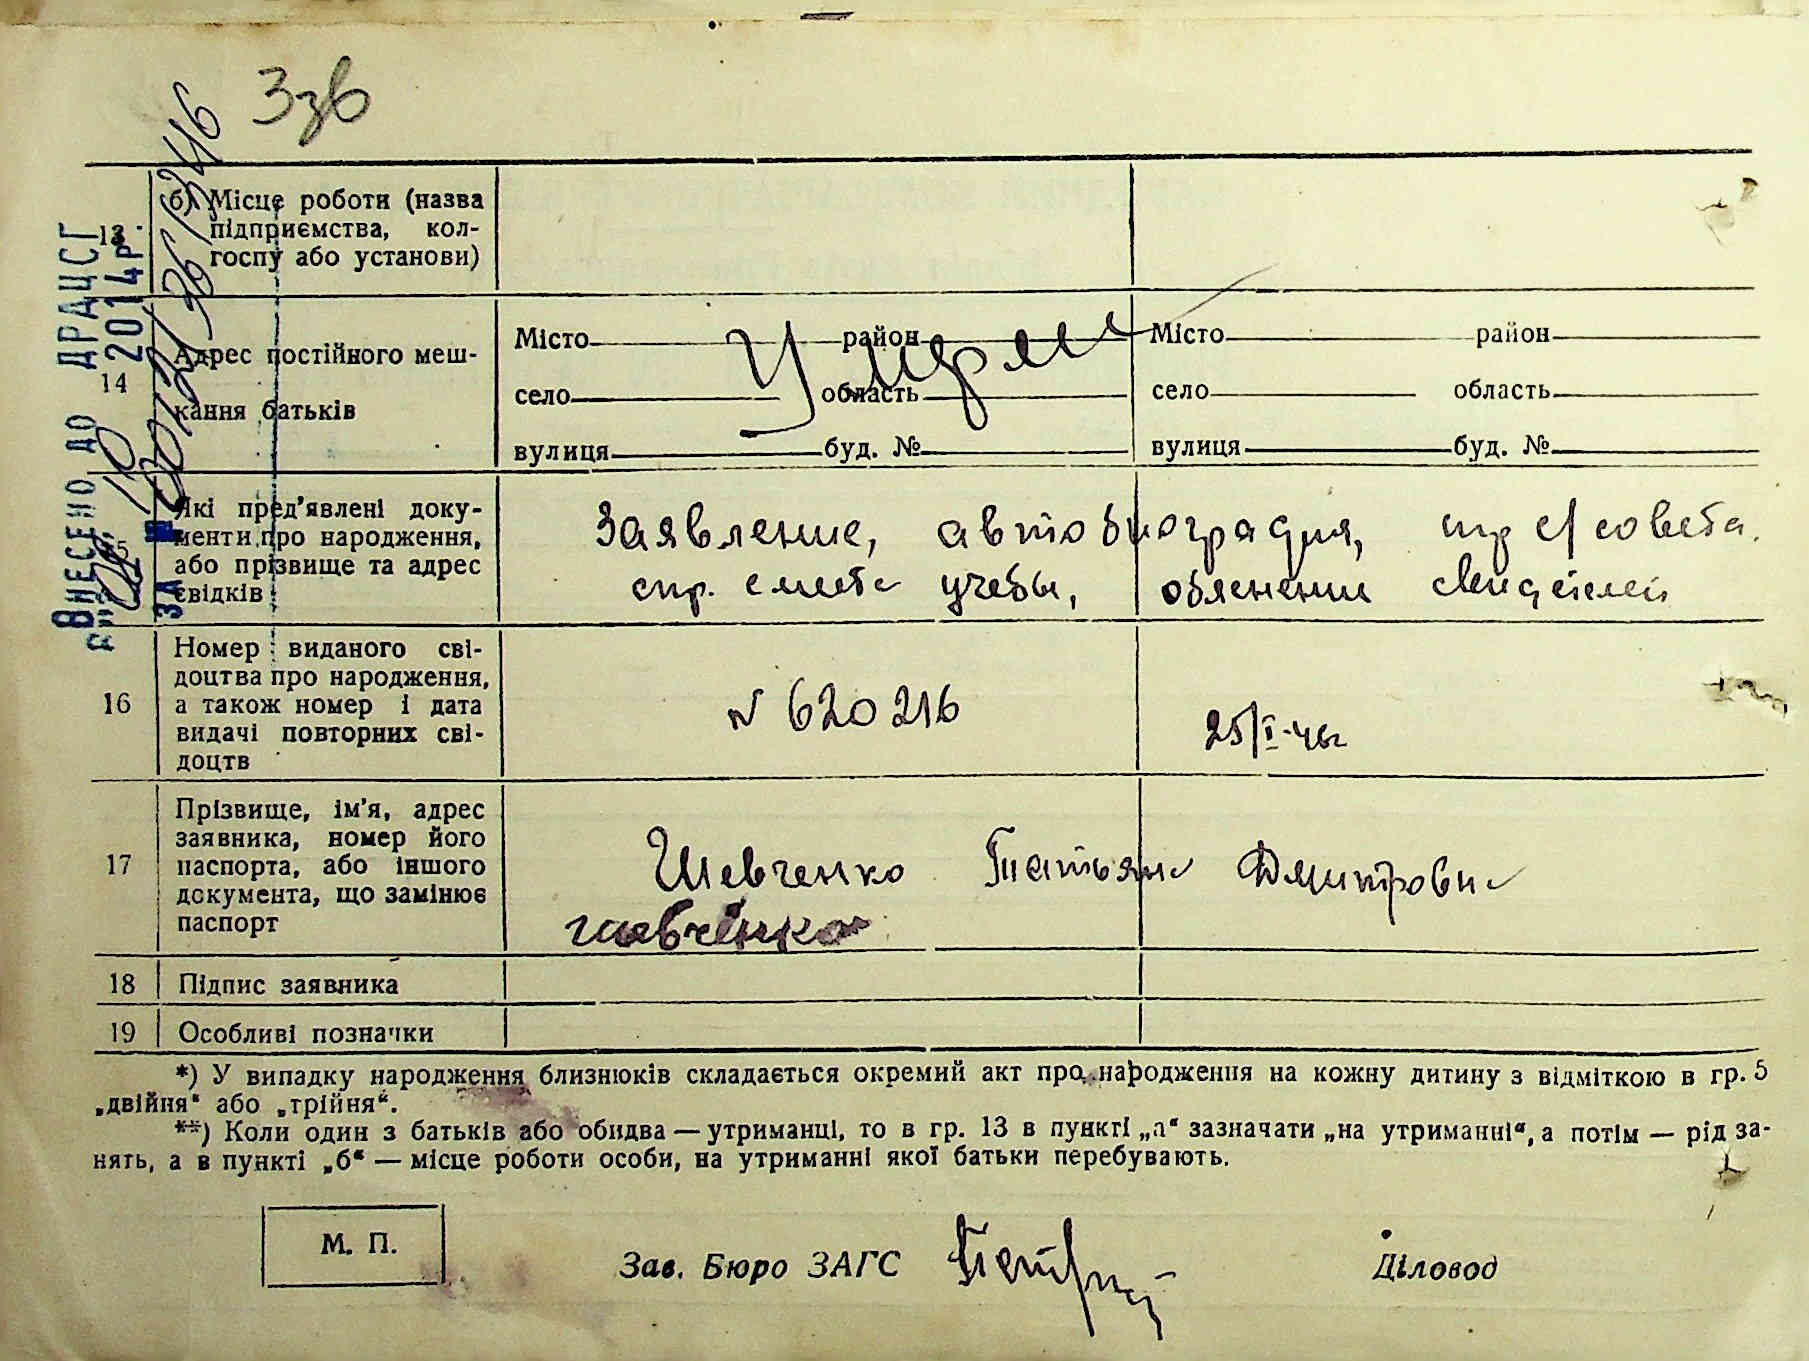 Ззв
13
б) Місце роботи (назва
підприємства, кол-
госпу або установи)
14
Адрес постійного меш-
кання батьків
Місто район
село область
вулиця буд. №
Умерли
Місто район
село область
вулиця буд. №
15
Які пред'явлені доку-
менти про народження,
або прізвище та адрес
свідків
Заявление, автобиография, спр с/совета.
спр. с места учебы, обяснении свидетелей
16
Номер виданого сві-
доцтва про народження,
а також номер і дата
видачі повторних сві-
доцтв
N 620216
25/I-46г
17
Прізвище, ім'я, адрес
заявника, номер його
паспорта, або іншого
документа, що замінює
паспорт
Шевченко Татьяна Дмитровна
18 Підпис заявника
19 Особливі позначки
*) У випадку народження близнюків складається окремий акт про народження на кожну дитину з відміткою в гр. 5
„двійня“ або „трійня“.
**) Коли один з батьків або обидва — утриманці, то в гр. 13 в пункті „а“ зазначати „на утриманні“, а потім — рід за-
нять, а в пункті „б“ — місце роботи особи, на утриманні якої батьки перебувають.
М. П.
Зав. Бюро ЗАГС
Діловод
ВНЕСЕНО ДО ДРАЦСГ
2014р
ЗА №